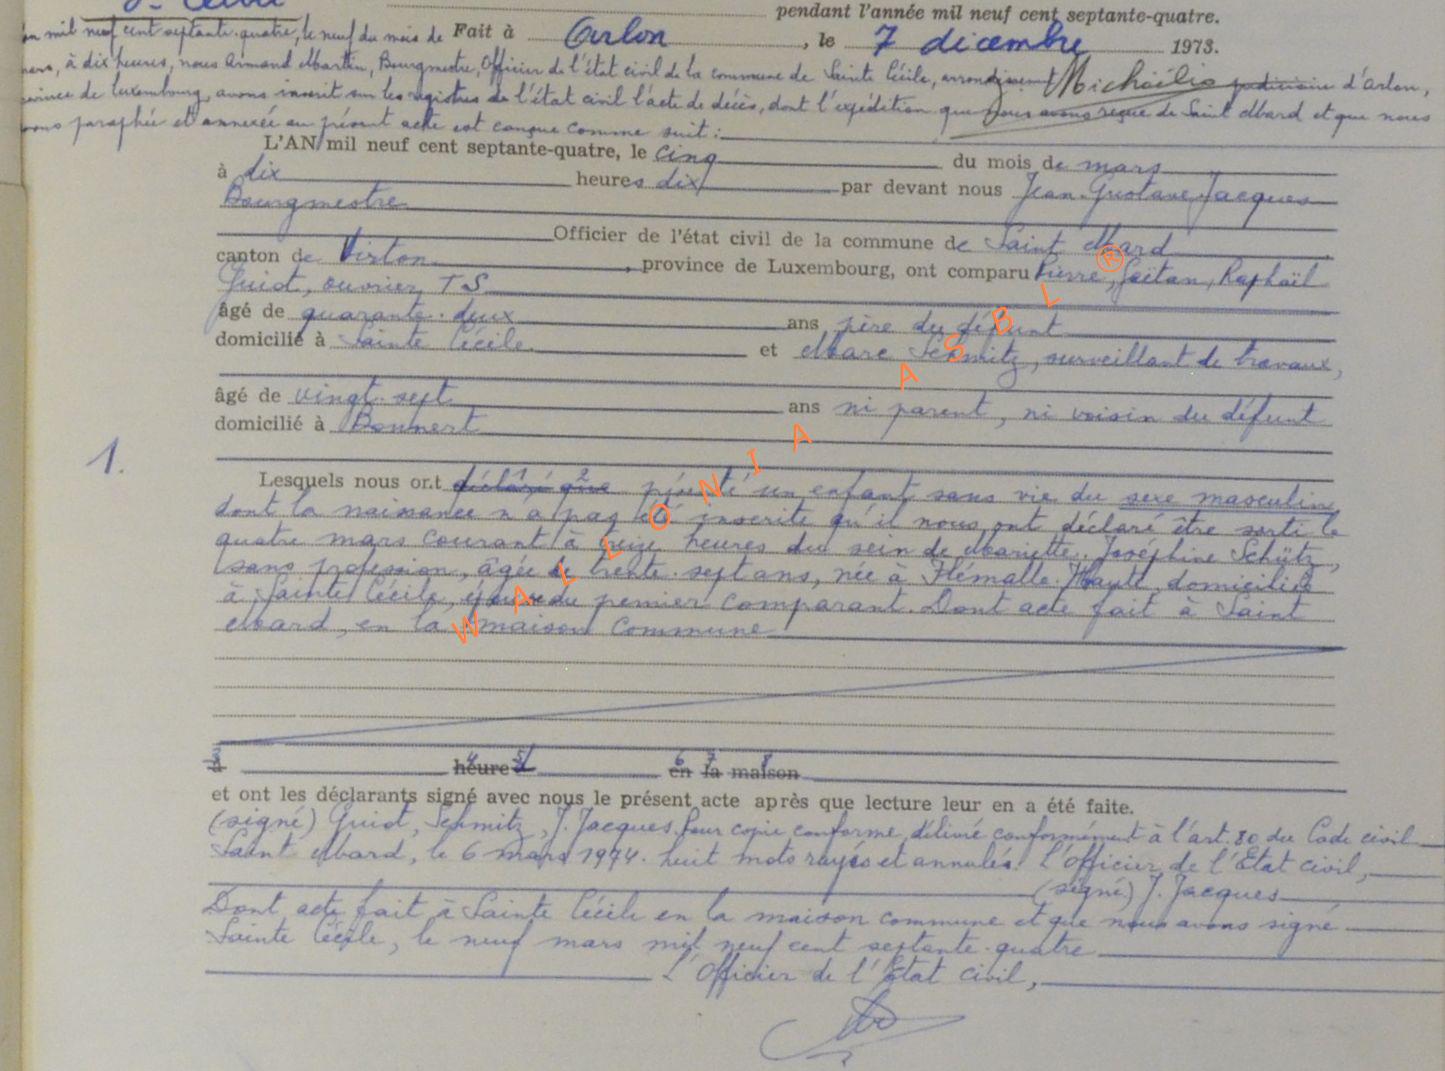 pendant l'année mil neuf cent septante-quatre.
Fait à Arlon, le 7 décembre 1973.
mil neuf cent septante-quatre, le neuf du mois de
mars, à dix heures, nous Armand Martin, Bourgmestre, Officier de l'état civil de la commune de Sainte Cécile, arrondissement judiciaire d'Arlon,
province de Luxembourg, avons inscrit sur les registres de l'état civil l'acte de décès, dont l'expédition que nous avons reçue de Saint Mard et que nous
avons paraphée et annexée au présent acte est conçue comme suit :
L'AN mil neuf cent septante-quatre, le cinq du mois de mars
à dix heures dix par devant nous Jean-Gustave Jacques
Bourgmestre
Officier de l'état civil de la commune de Saint Mard
canton de Virton, province de Luxembourg, ont comparu Pierre, Gaëtan, Raphaël
Guiot, ouvrier T S
âgé de quarante-deux ans père du défunt
domicilié à Sainte Cécile et Marc Schmitz, surveillant de travaux,
âgé de vingt-sept ans ni parent, ni voisin du défunt
domicilié à Bonnert
1.
Lesquels nous ont déclaré que présenté un enfant sans vie du sexe masculin
dont la naissance n'a pas été inscrite qu'il nous ont déclaré être sorti le
quatre mars courant à seize heures du sein de Mariette Joséphine Schütz,
sans profession, âgée de trente-sept ans, née à Flémalle-Haute, domiciliée
à Sainte Cécile, épouse du premier comparant. Dont acte fait à Saint
Mard, en la maison commune
à heure en la maison
et ont les déclarants signé avec nous le présent acte après que lecture leur en a été faite.
(signé) Guiot, Schmitz, J. Jacques. Pour copie conforme, délivré conformément à l'art. 80 du Code civil
Saint Mard, le 6 mars 1974. huit mots rayés et annulés. L'Officier de l'Etat civil,
(signé) J. Jacques
Dont acte fait à Sainte Cécile en la maison commune et que nous avons signé
Sainte Cécile, le neuf mars mil neuf cent septante-quatre
L'Officier de l'Etat civil,
WALLONIA ASBL ®